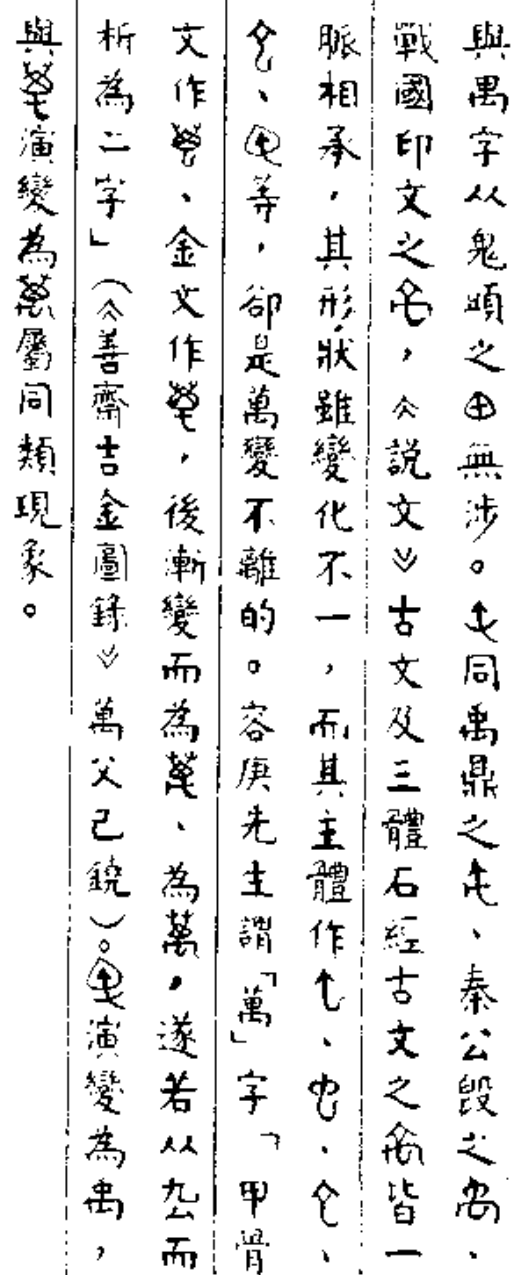 與禺字从鬼頭之甶無涉。同禹鼎之、秦公𣪘之、
戰國印文之，《說文》古文及三體石經古文之皆一
脈相承，其形狀雖變化不一，而其主體作、、、
、等，卻是萬變不離的。容庚先生謂「萬」字「甲骨
文作、金文作，後漸變而為、為萬，遂若从厹而
析為二字」（《善齋吉金圖錄》萬父己鐃）。演變為禹，
與演變為萬屬同類現象。